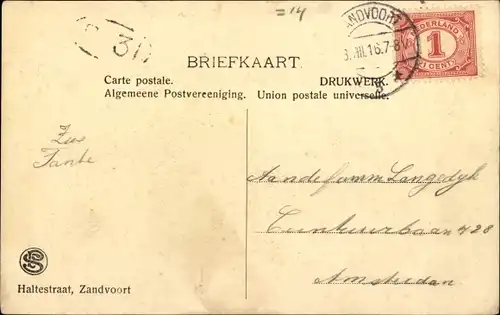 =14
ZANDVOORT
8.III.16.7-8V
NEDERLAND
1
CENT
BRIEFKAART.
Carte postale. DRUKWERK.
Algemeene Postvereeniging. Union postale universelle.
Zus
Tante
Aan de famm Langedyk
Ceintuurbaan 428
Amsterdam
Haltestraat, Zandvoort